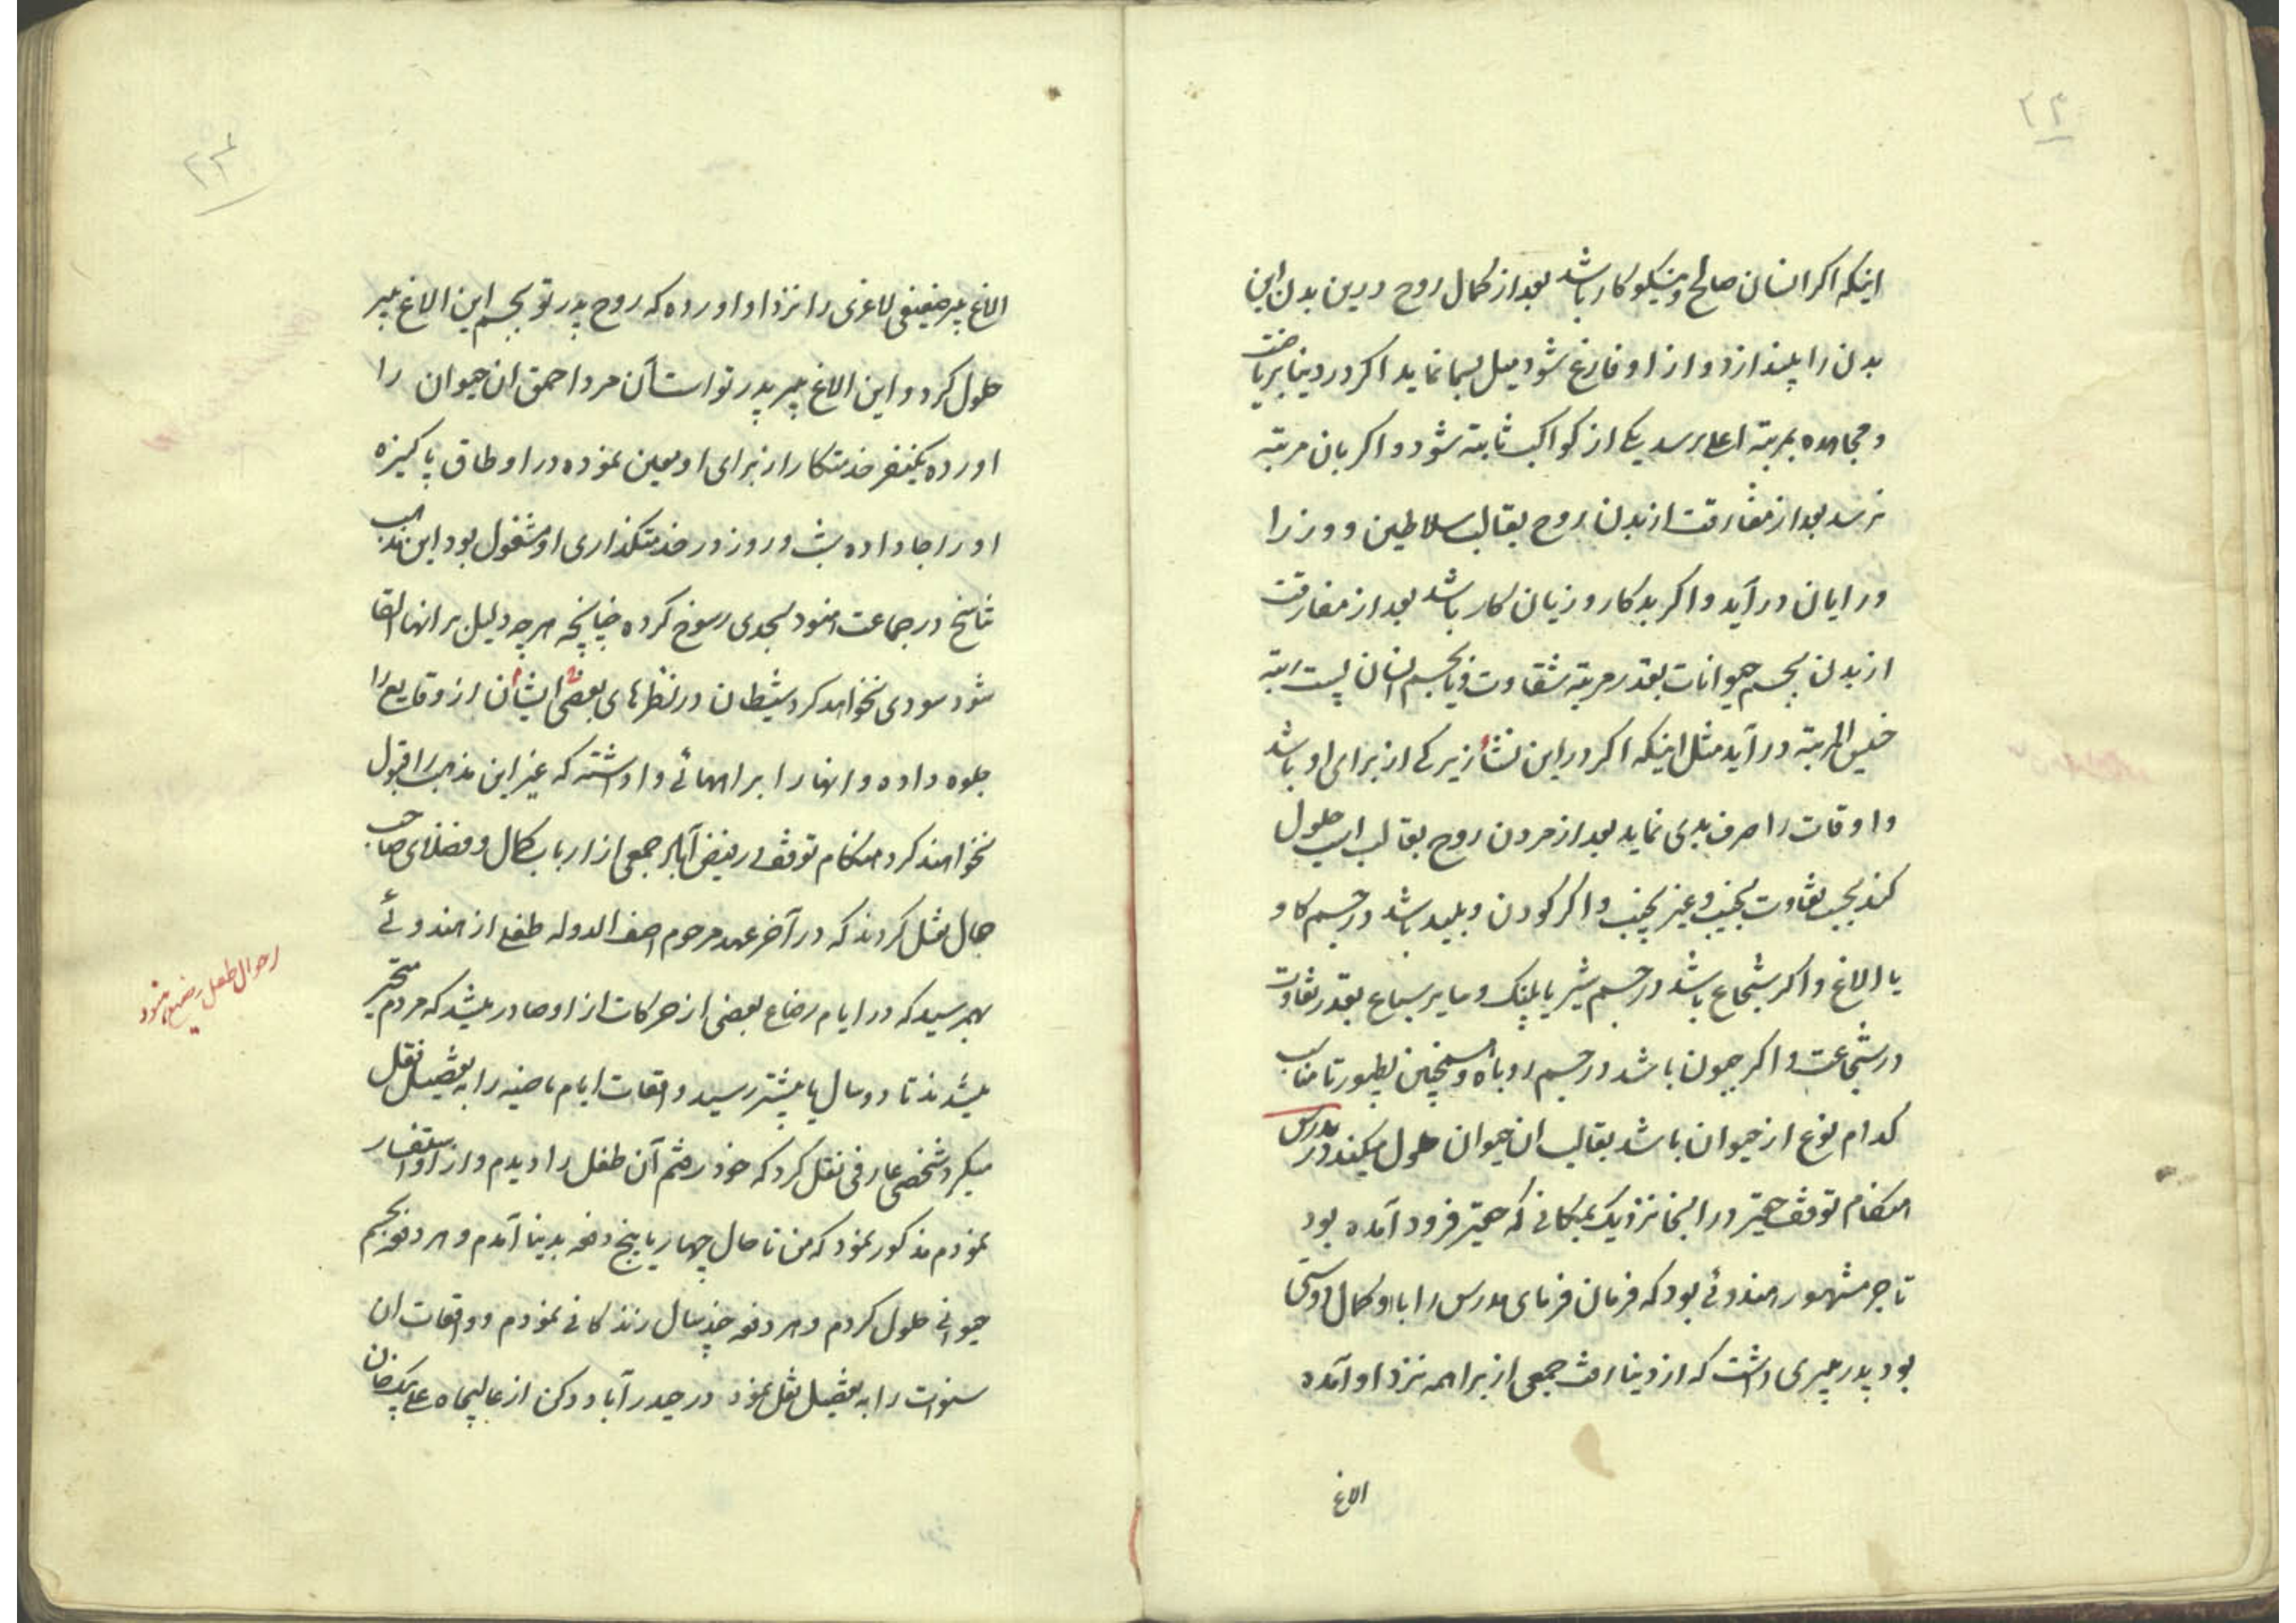 ۲۳
اینکه اکر انسان صالح و نیکوکار باشد بعد از کمال روح درین بدن این
بدن را بیندازد و از او فارغ شود میل بسما نماید اکر در دینا بریاضت
و مجاهده بمرتبه اعلی برسد یکی از کواکب ثابته شود و اکر بان مرتبه
نرسد بعد از مفارقت از بدن روح بقالب سلاطین و وزرا
و رایان در آید و اکر بدکار و زیان کار باشد بعد از مفارقت
از بدن بجسم حیوانات بقدر مرتبه شقاوت و یا بجسم انسان پست رتبه
خسیس المرتبه در آید مثل اینکه اکر در این نشأ زیرکی از برای او باشد
و اوقات را صرف بدی نماید بعد از مردن روح بقالب اسب حلول
کند بحسب تفاوت نجیب و غیر نجیب و اکر کودن و بلید باشد در جسم کاو
یا الاغ و اکر شجاع باشد در جسم شیر یا پلنک و سایر سباع بقدر تفاوت
در شجاعت و اکر جبون باشد در جسم روباه و همچنین بطیور تا مناسب
کدام نوع از حیوان باشد بقالب ان حیوان حلول میکند در مدرس
هنکام توقف حقیر در اینجا نزدیک بمکانی که حقیر فرود آمده بود
تاجر مشهور هندوئی بود که فرمان فرمای مدرس را با او کمال دوستی
بود پدر پیری داشت که از دینا رفت جمعی از براهمه نزد او آمده
الاغ
۲۴
الاغ پیر ضعیفی لاغری را نزد او اورده که روح پدر تو بجسم این الاغ پیر
حلول کرد و این الاغ پیر پدر تو است آن مرد احمق ان حیوان را
اورده یکنفر خدمتکار از برای او معین نموده در اوطاق پاکیزه
او را جا داده شب و روز در خدمتکذاری او مشغول بود این مذهب
تناسخ در جماعت هنود بحدی رسوخ کرده چنانچه هر چه دلیل بر انها القا
شود سودی نخواهد کرد شیطان در نظرهای بعضی ایشان از وقایع را
جلوه داده و انها را براههائی واداشته که غیر این مذهب را قبول
نخواهند کرد هنکام توقف در فیض آباد جمعی از ارباب کمال و فضلای صاحب
حال نقل کردند که در آخر عهد مرحوم اصف الدوله طفلی از هندوئی
بهم رسید که در ایام رضاع بعضی از حرکات از او صادر میشد که مردم متحیر
میشدند تا دو سال یا بیشتر رسید واقعات ایام ماضیه را به تفصیل نقل
میکرد شخصی عارفی نقل کرد که خود رفتم آن طفل را دیدم و از او استفسار
نمودم مذکور نمود که من تا حال چهار یا پنج دفعه بدینا آمدم و هر دفعه بجسم
حیوانی حلول کردم و هر دفعه چند سال زندکانی نمودم و واقعات ان
سنوات را به تفصیل نقل نمود در حیدرآباد دکن از عالیجاه علی بیک خان
احوال طفل رضیع هنود